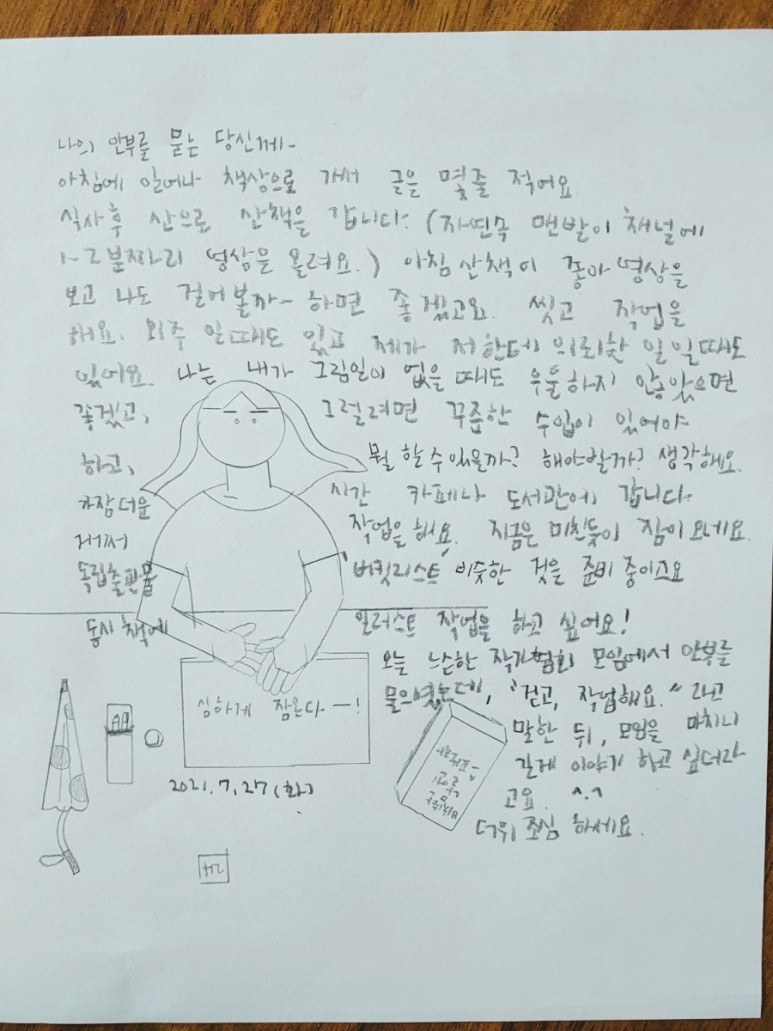 나의 안부를 묻는 당신께-
아침에 일어나 책상으로 가서 글을 몇줄 적어요
식사 후 산으로 산책을 갑니다. (자연속 맨발이 채널에
1~2분짜리 영상을 올려요.) 아침 산책이 좋아 영상을
보고 나도 걸어볼까~ 하면 좋겠고요. 씻고 작업을
해요. 외주 일 때도 있고 제가 저한테 의뢰한 일일때도
있어요. 나는 내가 그림일이 없을 때도 우울하지 않았으면
좋겠고, 그럴려면 꾸준한 수입이 있어야
하고, 뭘 할 수 있을까? 해야할까? 생각해요.
가장 더운 시간 카페나 도서관에 갑니다.
가서 작업을 해요. 지금은 미친듯이 잠이 오네요.
독립출판물 '버킷리스트' 비슷한 것을 준비 중이고요
동시 책에 일러스트 작업을 하고 싶어요!
오늘 느슨한 작가협회 모임에서 안부를
물으셨는데, "걷고, 작업해요." 라고
심하게 잠온다-!
말한 뒤, 모임을 마치니
길게 이야기 하고 싶더라
고요. ^.^
더위 조심 하세요.
2021.7.27 (화)